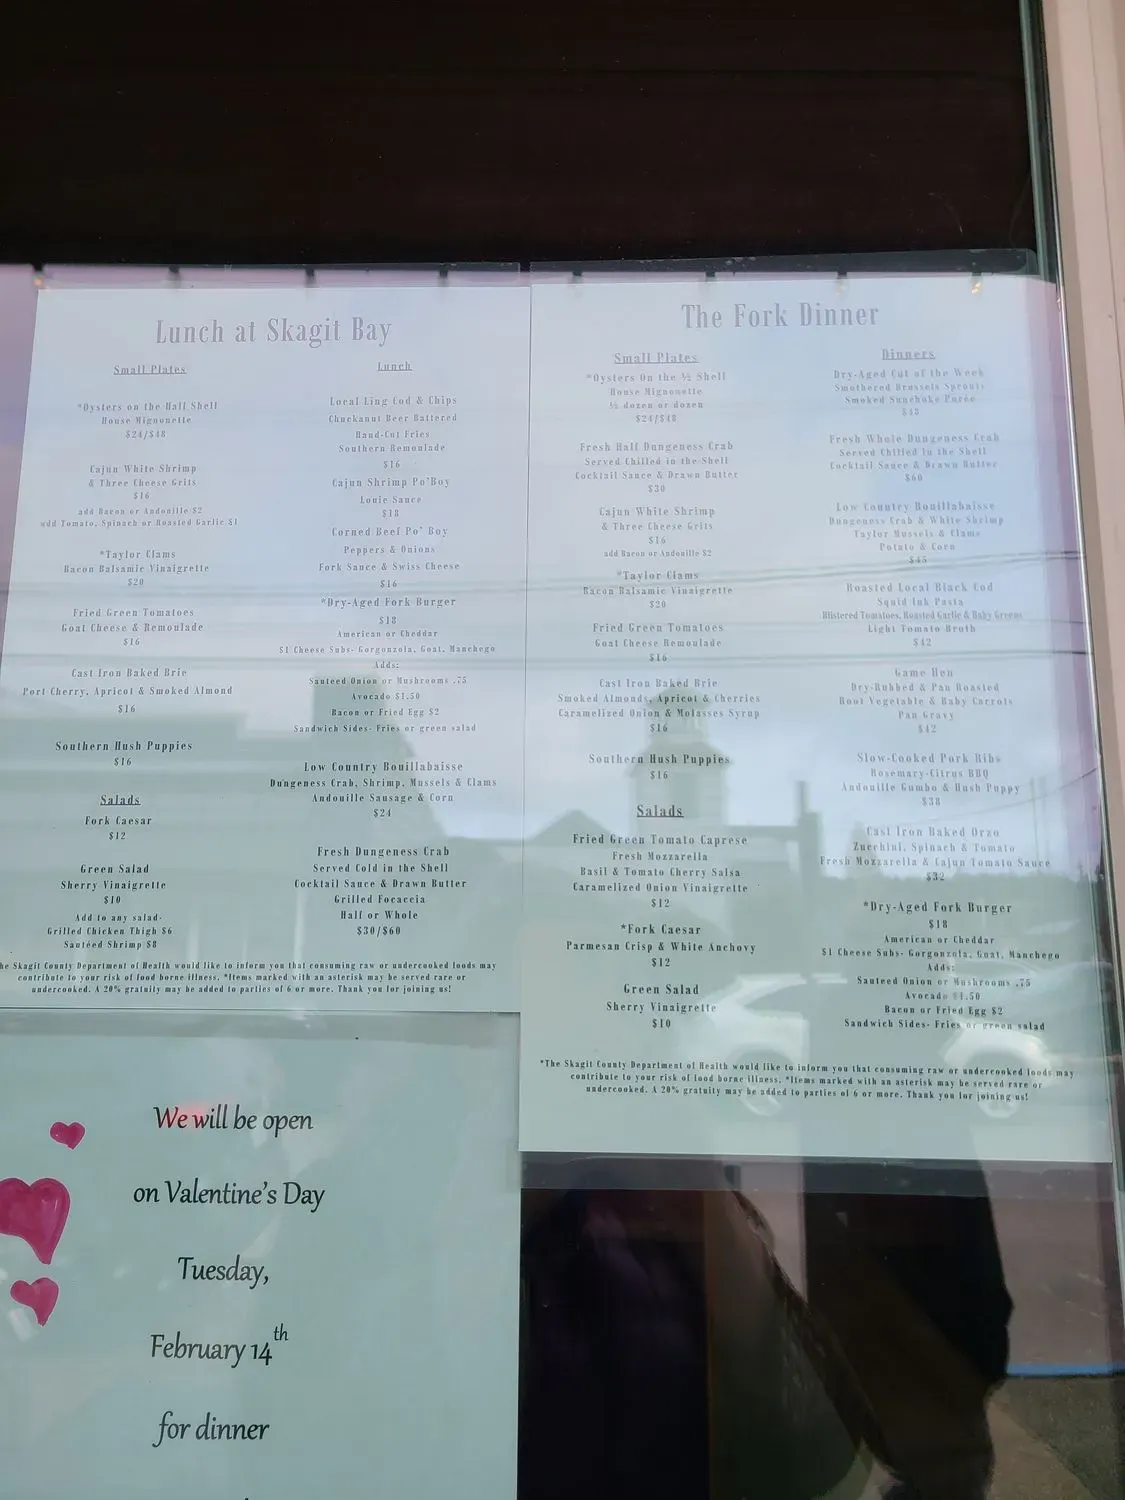 Lunch at Skagit Bay
Small Plates
*Oysters on the Half Shell
House Mignonette
$24/$48
Cajun White Shrimp
& Three Cheese Grits
$16
add Bacon or Andouille $2
add Tomato, Spinach or Roasted Garlic $1
*Taylor Clams
Bacon Balsamic Vinaigrette
$20
Fried Green Tomatoes
Goat Cheese & Remoulade
$16
Cast Iron Baked Brie
Port Cherry, Apricot & Smoked Almond
$16
Southern Hush Puppies
$16
Salads
Fork Caesar
$12
Green Salad
Sherry Vinaigrette
$10
Add to any salad-
Grilled Chicken Thigh $6
Sautéed Shrimp $8
Lunch
Local Ling Cod & Chips
Chuckanut Beer Battered
Hand-Cut Fries
Southern Remoulade
$16
Cajun Shrimp Po'Boy
Louie Sauce
$18
Corned Beef Po' Boy
Peppers & Onions
Fork Sauce & Swiss Cheese
$16
*Dry-Aged Fork Burger
$18
American or Cheddar
$1 Cheese Subs- Gorgonzola, Goat, Manchego
Adds:
Sauteed Onion or Mushrooms .75
Avocado $1.50
Bacon or Fried Egg $2
Sandwich Sides- Fries or green salad
Low Country Bouillabaisse
Dungeness Crab, Shrimp, Mussels & Clams
Andouille Sausage & Corn
$24
Fresh Dungeness Crab
Served Cold in the Shell
Cocktail Sauce & Drawn Butter
Grilled Focaccia
Half or Whole
$30/$60
he Skagit County Department of Health would like to inform you that consuming raw or undercooked foods may
contribute to your risk of food borne illness. *Items marked with an asterisk may be served rare or
undercooked. A 20% gratuity may be added to parties of 6 or more. Thank you for joining us!
The Fork Dinner
Small Plates
*Oysters On the ½ Shell
House Mignonette
½ dozen or dozen
$24/$48
Fresh Half Dungeness Crab
Served Chilled in the Shell
Cocktail Sauce & Drawn Butter
$30
Cajun White Shrimp
& Three Cheese Grits
$16
add Bacon or Andouille $2
*Taylor Clams
Bacon Balsamic Vinaigrette
$20
Fried Green Tomatoes
Goat Cheese Remoulade
$16
Cast Iron Baked Brie
Smoked Almonds, Apricot & Cherries
Caramelized Onion & Molasses Syrup
$16
Southern Hush Puppies
$16
Salads
Fried Green Tomato Caprese
Fresh Mozzarella
Basil & Tomato Cherry Salsa
Caramelized Onion Vinaigrette
$12
*Fork Caesar
Parmesan Crisp & White Anchovy
$12
Green Salad
Sherry Vinaigrette
$10
Dinners
Dry-Aged Cut of the Week
Smothered Brussels Sprouts
Smoked Sunchoke Purée
$48
Fresh Whole Dungeness Crab
Served Chilled in the Shell
Cocktail Sauce & Drawn Butter
$60
Low Country Bouillabaisse
Dungeness Crab & White Shrimp
Taylor Mussels & Clams
Potato & Corn
$45
Roasted Local Black Cod
Squid Ink Pasta
Blistered Tomatoes, Roasted Garlic & Baby Greens
Light Tomato Broth
$42
Game Hen
Dry-Rubbed & Pan Roasted
Root Vegetable & Baby Carrots
Pan Gravy
$42
Slow-Cooked Pork Ribs
Rosemary-Citrus BBQ
Andouille Gumbo & Hush Puppy
$38
Cast Iron Baked Orzo
Zucchini, Spinach & Tomato
Fresh Mozzarella & Cajun Tomato Sauce
$32
*Dry-Aged Fork Burger
$18
American or Cheddar
$1 Cheese Subs- Gorgonzola, Goat, Manchego
Adds:
Sauteed Onion or Mushrooms .75
Avocado $1.50
Bacon or Fried Egg $2
Sandwich Sides- Fries or green salad
*The Skagit County Department of Health would like to inform you that consuming raw or undercooked foods may
contribute to your risk of food borne illness. *Items marked with an asterisk may be served rare or
undercooked. A 20% gratuity may be added to parties of 6 or more. Thank you for joining us!
We will be open
on Valentine's Day
Tuesday,
February 14th
for dinner